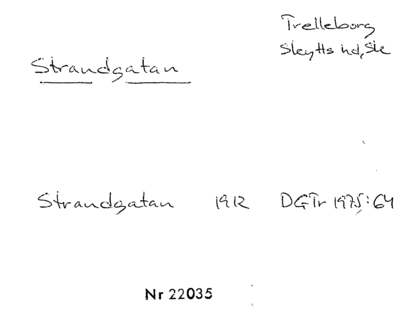 Trelleborg
Skytts hd, Ske
Strandgatan
Strandgatan 1912 DGTr 1975:64
Nr 22035